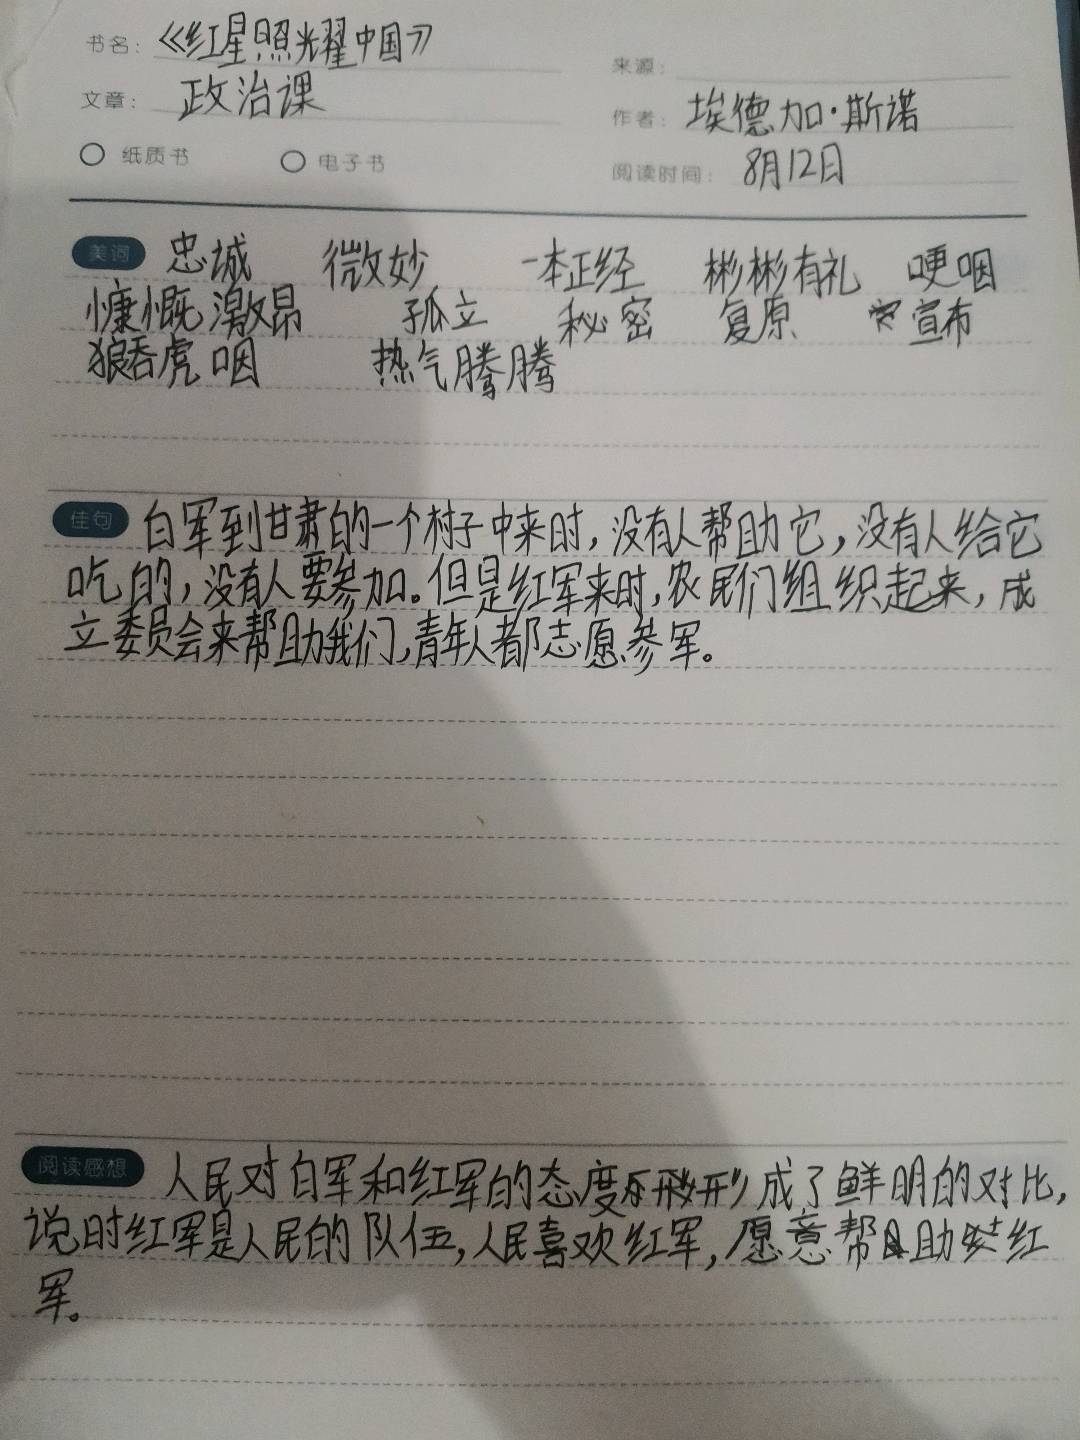 书名：《红星照光耀中国》
来源：
文章：政治课
作者：埃德加·斯诺
纸质书 电子书
阅读时间：8月12日
美词 忠诚 微妙 一本正经 彬彬有礼 哽咽
慷慨激昂 孤立 秘密 复原 宣布
狼吞虎咽 热气腾腾
佳句 白军到甘肃的一个村子中来时，没有人帮助它，没有人给它
吃的，没有人要参加。但是红军来时，农民们组织起来，成
立委员会来帮助我们，青年人都志愿参军。
阅读感想 人民对白军和红军的态度形成了鲜明的对比，
说时红军是人民的队伍，人民喜欢红军，愿意帮助红
军。